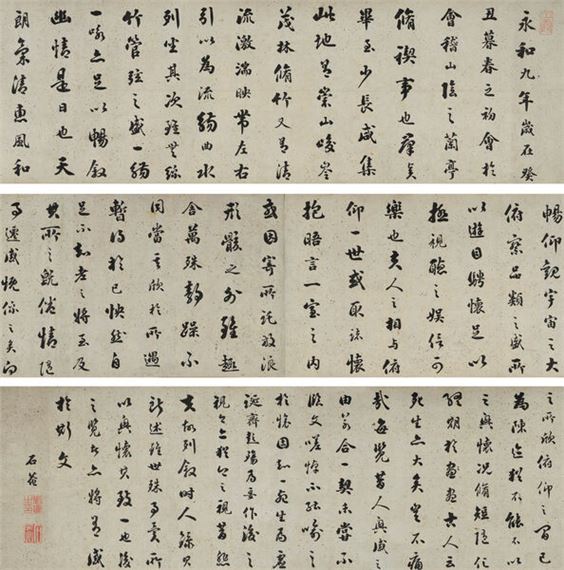 永和九年歲在癸
丑暮春之初會於
會稽山陰之蘭亭
脩禊事也羣賢
畢至少長咸集
此地有崇山峻嶺
茂林脩竹又有清
流激湍映帶左右
引以為流觴曲水
列坐其次雖無絲
竹管弦之盛一觴
一詠亦足以暢敘
幽情是日也天
朗氣清惠風和
暢仰觀宇宙之大
俯察品類之盛所
以遊目騁懷足以
極視聽之娛信可
樂也夫人之相與俯
仰一世或取諸懷
抱晤言一室之內
或因寄所託放浪
形骸之外雖趣
舍萬殊靜躁不
同當其欣於所遇
暫得於己怏然自
足不知老之將至及
其所之既倦情隨
事遷感慨係之矣向
之所欣俯仰之間已
為陳迹猶不能不以
之興懷況脩短隨化
終期於盡古人云
死生亦大矣豈不痛
哉每覽昔人興感之
由若合一契未嘗不
臨文嗟悼不能喻之
於懷固知一死生為虛
誕齊彭殤為妄作後之
視今亦猶今之視昔悲
夫故列敘時人錄其
所述雖世殊事異所
以興懷其致一也後
之覽者亦將有感
於斯文
石菴